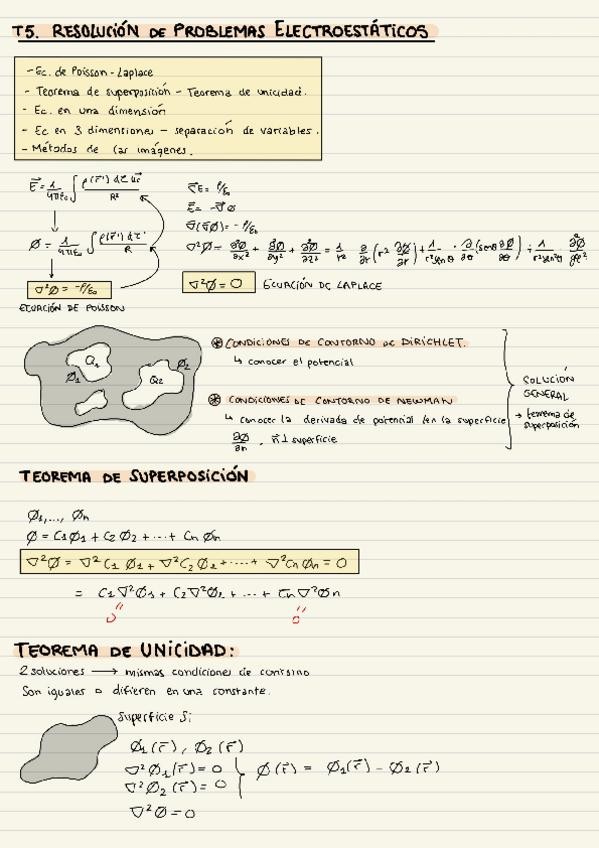 T5. RESOLUCIÓN DE PROBLEMAS ELECTROESTÁTICOS
- Ec. de Poisson - Laplace
- Teorema de superposición - Teorema de unicidad.
- Ec. en una dimensión
- Ec en 3 dimensiones - separación de variables.
- Métodos de las imágenes.
E⃗ = 1/4πε₀ ∫ ρ(r⃗') dτ' u⃗r / R²
∇⃗E = ρ/ε₀
E⃗ = -∇⃗Ø
∇⃗(∇⃗Ø) = -ρ/ε₀
Ø = 1/4πε₀ ∫ ρ(r⃗') dτ' / R
∇²Ø = ∂²Ø/∂x² + ∂²Ø/∂y² + ∂²Ø/∂z² = 1/r² ∂/∂r (r² ∂Ø/∂r) + 1/r²senθ · ∂/∂θ (senθ ∂Ø/∂θ) + 1/r²sen²θ ∂²Ø/∂φ²
∇²Ø = -ρ/ε₀
∇²Ø = 0 ECUACIÓN DE LAPLACE
ECUACIÓN DE POISSON
Q₁
Ø₁
Q₂
Ø₂
⊛ CONDICIONES DE CONTORNO DE DIRICHLET.
↳ conocer el potencial
⊛ CONDICIONES DE CONTORNO DE NEWMAN
↳ conocer la derivada de potencial /en la superficie
∂Ø/∂n . n⃗ ⊥ superficie
SOLUCIÓN
GENERAL
→ teorema de
superposición
TEOREMA DE SUPERPOSICIÓN
Ø₁,..., Øn
Ø = C₁Ø₁ + C₂Ø₂ + ... + CnØn
∇²Ø = ∇²C₁Ø₁ + ∇²C₂Ø₂ + .... + ∇²CnØn = 0
= C₁∇²Ø₁ + C₂∇²Ø₂ + ... + Cn∇²Øn
0'' 0''
TEOREMA DE UNICIDAD:
2 soluciones → mismas condiciones de contorno
Son iguales o difieren en una constante.
Superficie Si
Ø₁(r⃗), Ø₂(r⃗)
∇²Ø₁(r⃗) = 0
∇²Ø₂(r⃗) = 0
Ø(r⃗) = Ø₁(r⃗) - Ø₂(r⃗)
∇²Ø = 0